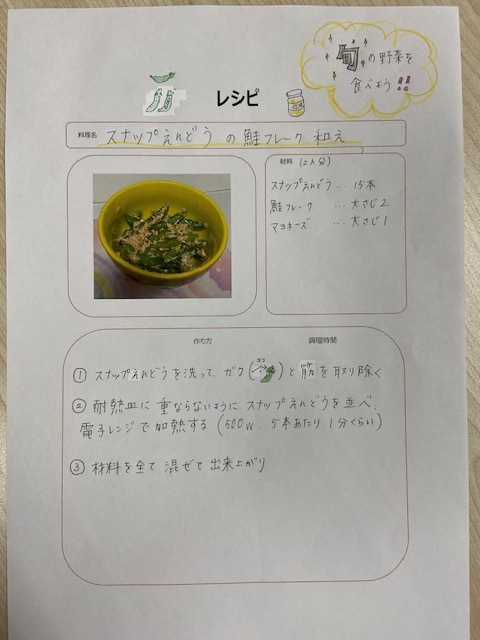 旬の野菜を
食べよう!!
レシピ
料理名 スナップえんどうの鮭フレーク和え
材料 (2人分)
スナップえんどう… 15本
鮭フレーク …大さじ2
マヨネーズ …大さじ1
作り方 調理時間
① スナップえんどうを洗って、ガク(ココ)と筋を取り除く
② 耐熱皿に重ならないようにスナップえんどうを並べ、
電子レンジで加熱する(500w、5本あたり1分くらい)
③ 材料を全て混ぜて出来上がり